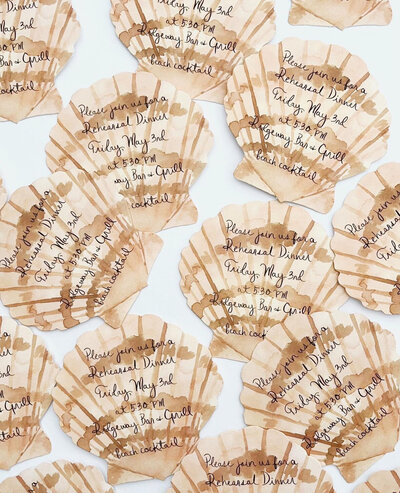 Rehearsal Dinner
Friday, May 3rd
at 5:30 PM
Ridgeway Bar & Grill
beach cocktail
Please join us for a
Rehearsal Dinner
Friday, May 3rd
at 5:30 PM
way Bar & Grill
cocktail
Please join us for a
Rehearsal Dinner
Friday, May 3rd
at 5:30 PM
Ridgeway Bar & Grill
beach cocktail
Please join us for a
Rehearsal Dinner
Friday, May 3rd
at 5:30 PM
Ridgeway Bar & Grill
beach cocktail
Please join us for a
Rehearsal Dinner
Friday, May 3rd
at 5:30 PM
Ridgeway Bar & Grill
beach cock
Please join us for a
Rehearsal Dinner
Friday, May 3rd
at 5:30 PM
Ridgeway Bar & Grill
beach cocktail
Please join us for a
Rehearsal Dinner
Friday, May 3rd
at 5:30 PM
Ridgeway Bar & Grill
beach cocktail
Please join us for a
Rehearsal Dinner
Friday, May 3rd